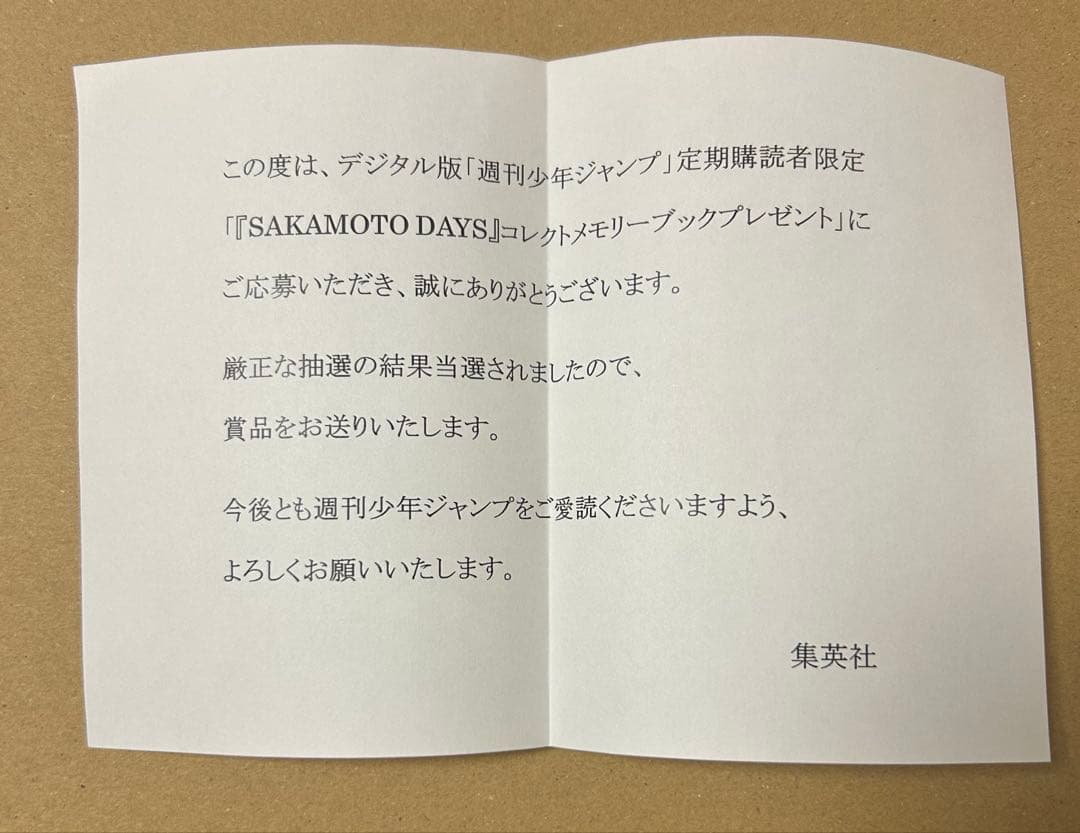 この度は、デジタル版「週刊少年ジャンプ」定期購読者限定
「『SAKAMOTO DAYS』コレクトメモリーブックプレゼント」に
ご応募いただき、誠にありがとうございます。
厳正な抽選の結果当選されましたので、
賞品をお送りいたします。
今後とも週刊少年ジャンプをご愛読くださいますよう、
よろしくお願いいたします。
集英社